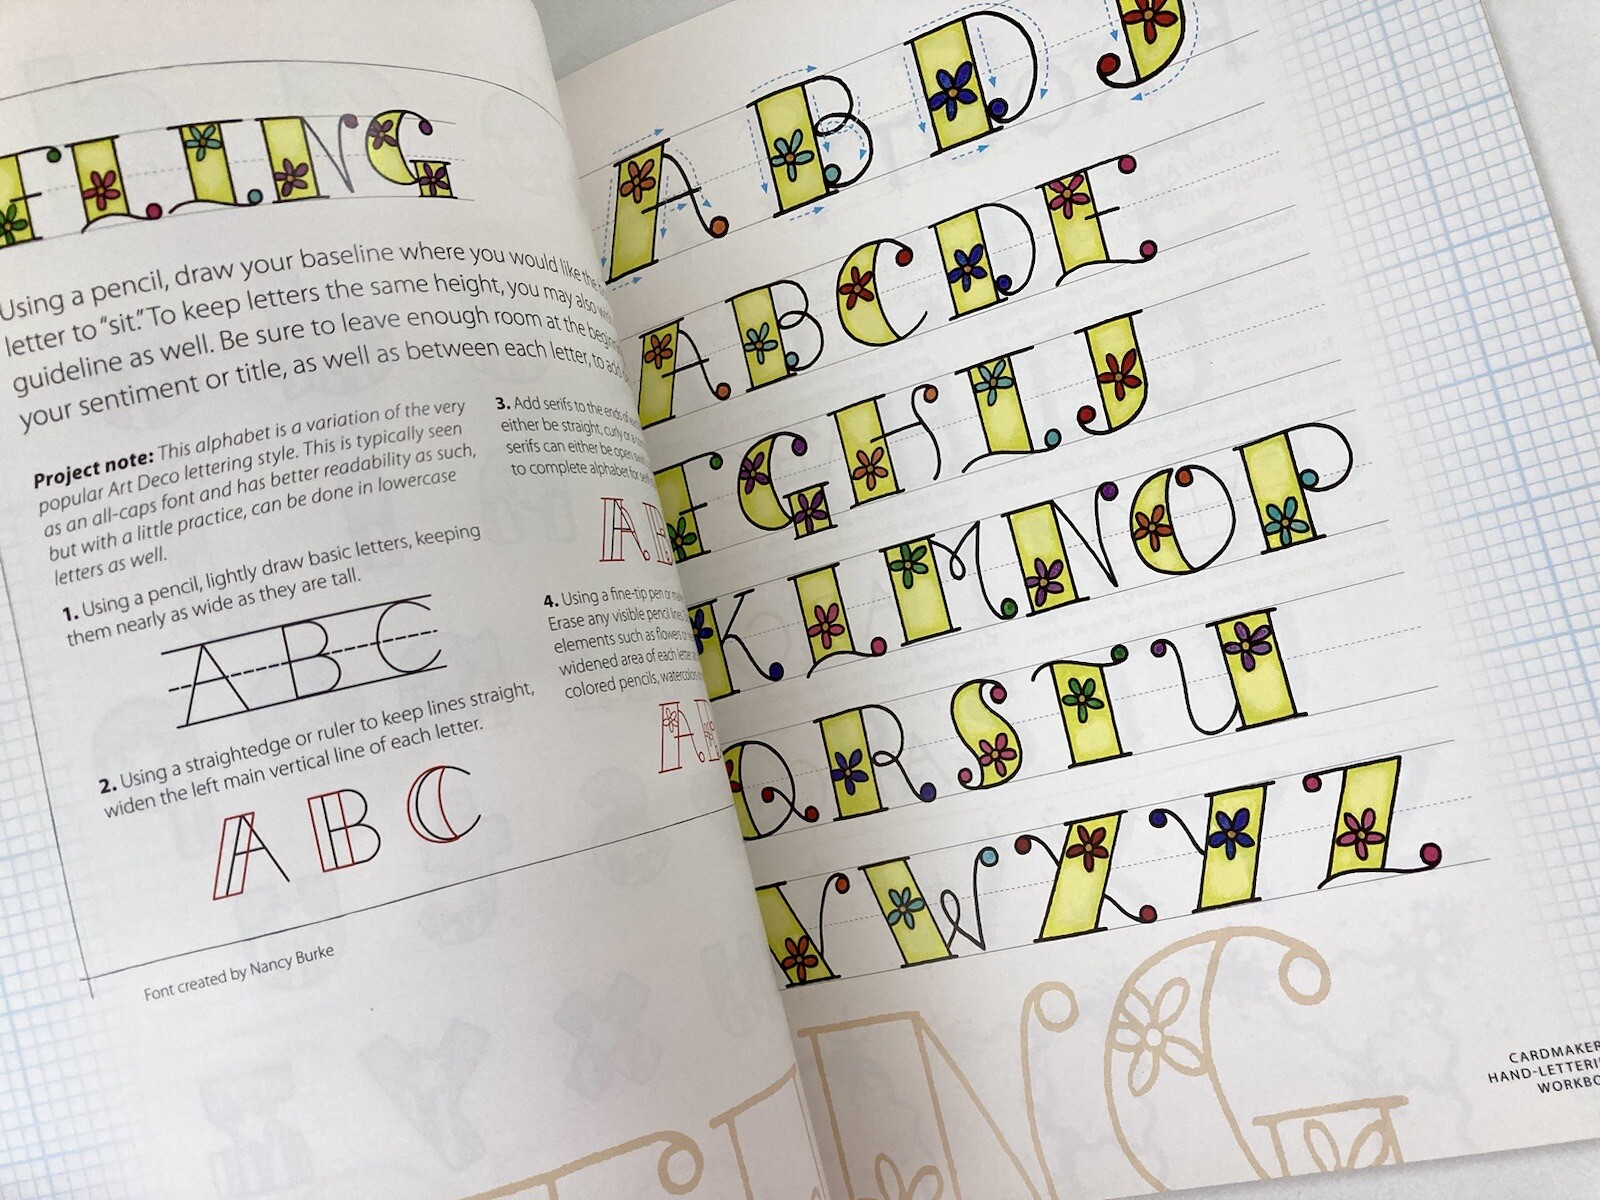 FLING
Using a pencil, draw your baseline where you would like the
letter to “sit.” To keep letters the same height, you may also
guideline as well. Be sure to leave enough room at the
your sentiment or title, as well as between each letter, to
Project note: This alphabet is a variation of the very
popular Art Deco lettering style. This is typically seen
as an all-caps font and has better readability as such,
but with a little practice, can be done in lowercase
letters as well.
1. Using a pencil, lightly draw basic letters, keeping
them nearly as wide as they are tall.
A B C
2. Using a straightedge or ruler to keep lines straight,
widen the left main vertical line of each letter.
A B C
3. Add serifs to the ends of
either be straight, curly or a
serifs can either be open
to complete alphabet for
A B
4. Using a fine-tip pen or
Erase any visible pencil lines.
elements such as flowers
widened area of each letter
colored pencils,
A
Font created by Nancy Burke
A B D J
A B C D E
F G H I J
K L M N O P
Q R S T U
V W X Y Z
NG
CARDMAKER
HAND-LETTERI
WORKBO